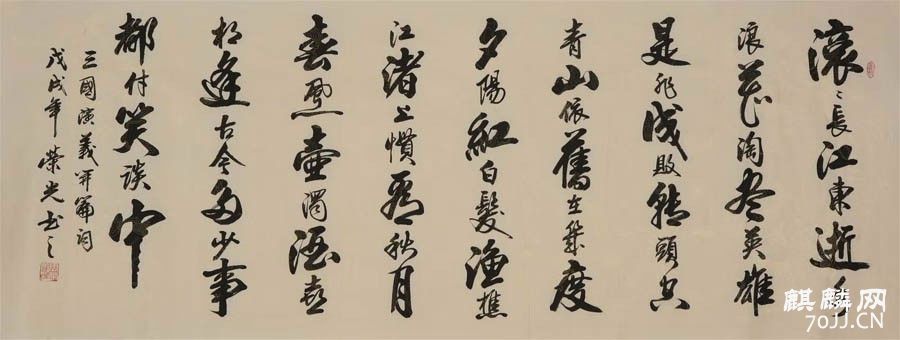 滚〻長江東逝水
浪花淘尽英雄
是非成敗转頭空
青山依舊在幾度
夕陽紅白髮漁樵
江渚上慣看秋月
春風壺濁酒喜
相逢古今多少事
都付笑談中
三國演義開篇詞
戊戌年榮光書之
麒麟网
70JJ.CN